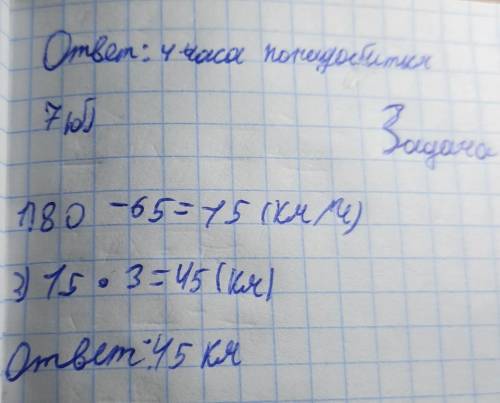 Ответ: 4 часа понадобится
7 (б)
Задача
1) 80 - 65 = 15 (км/ч)
2) 15 • 3 = 45 (км)
Ответ: 45 км